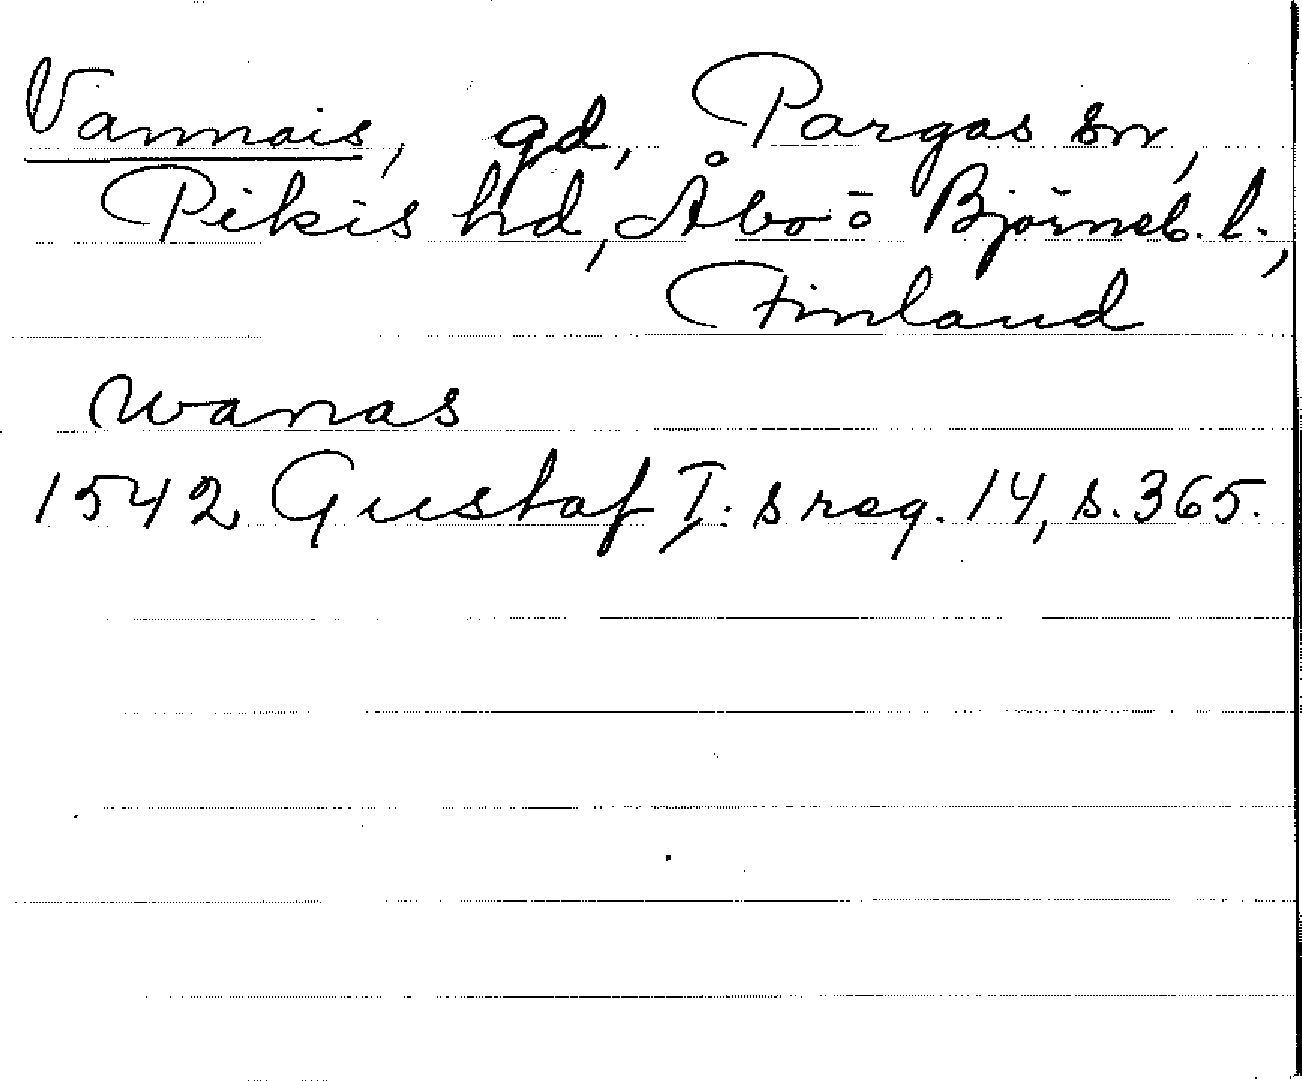 Vannais, gd, Pargas sn,
Pikis hd, Åbo o Björneb. l.,
Finland
wanas
1542 Gustaf I:s reg. 14, s. 365.